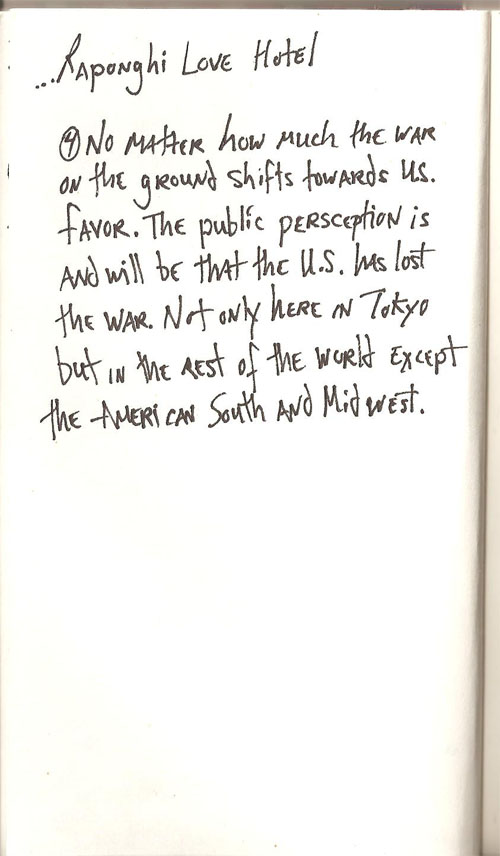 ...Raponghi Love Hotel
④ No matter how much the war
on the ground shifts towards US.
favor. The public persception is
and will be that the U.S. has lost
the war. Not only here in Tokyo
but in the rest of the world except
the American South and Midwest.